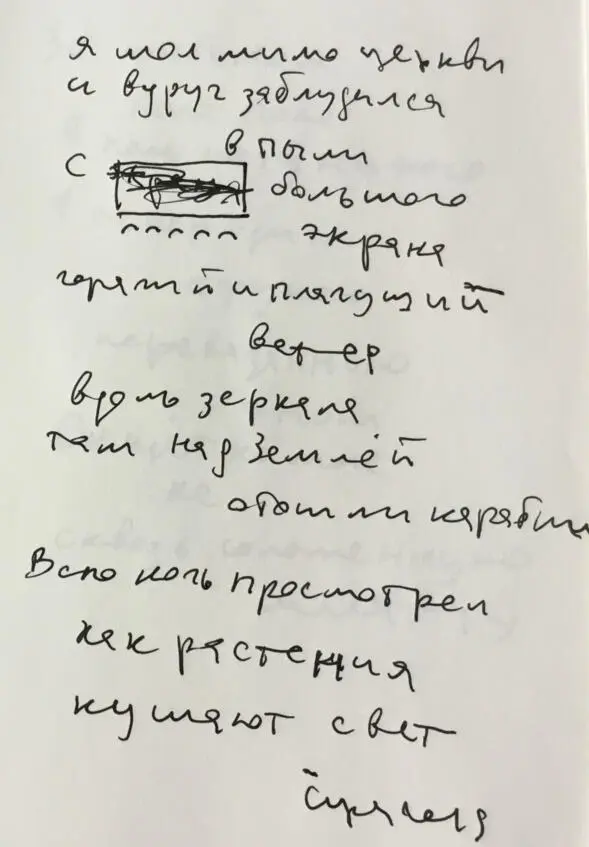 я шол мимо церкви
и вдруг заблудился
в пыли
с большого
экрана
горячий и плачущий
ветер
вдоль зеркала
там над землёй
отошли
Всю ночь просмотрел
как растения
кушают свет